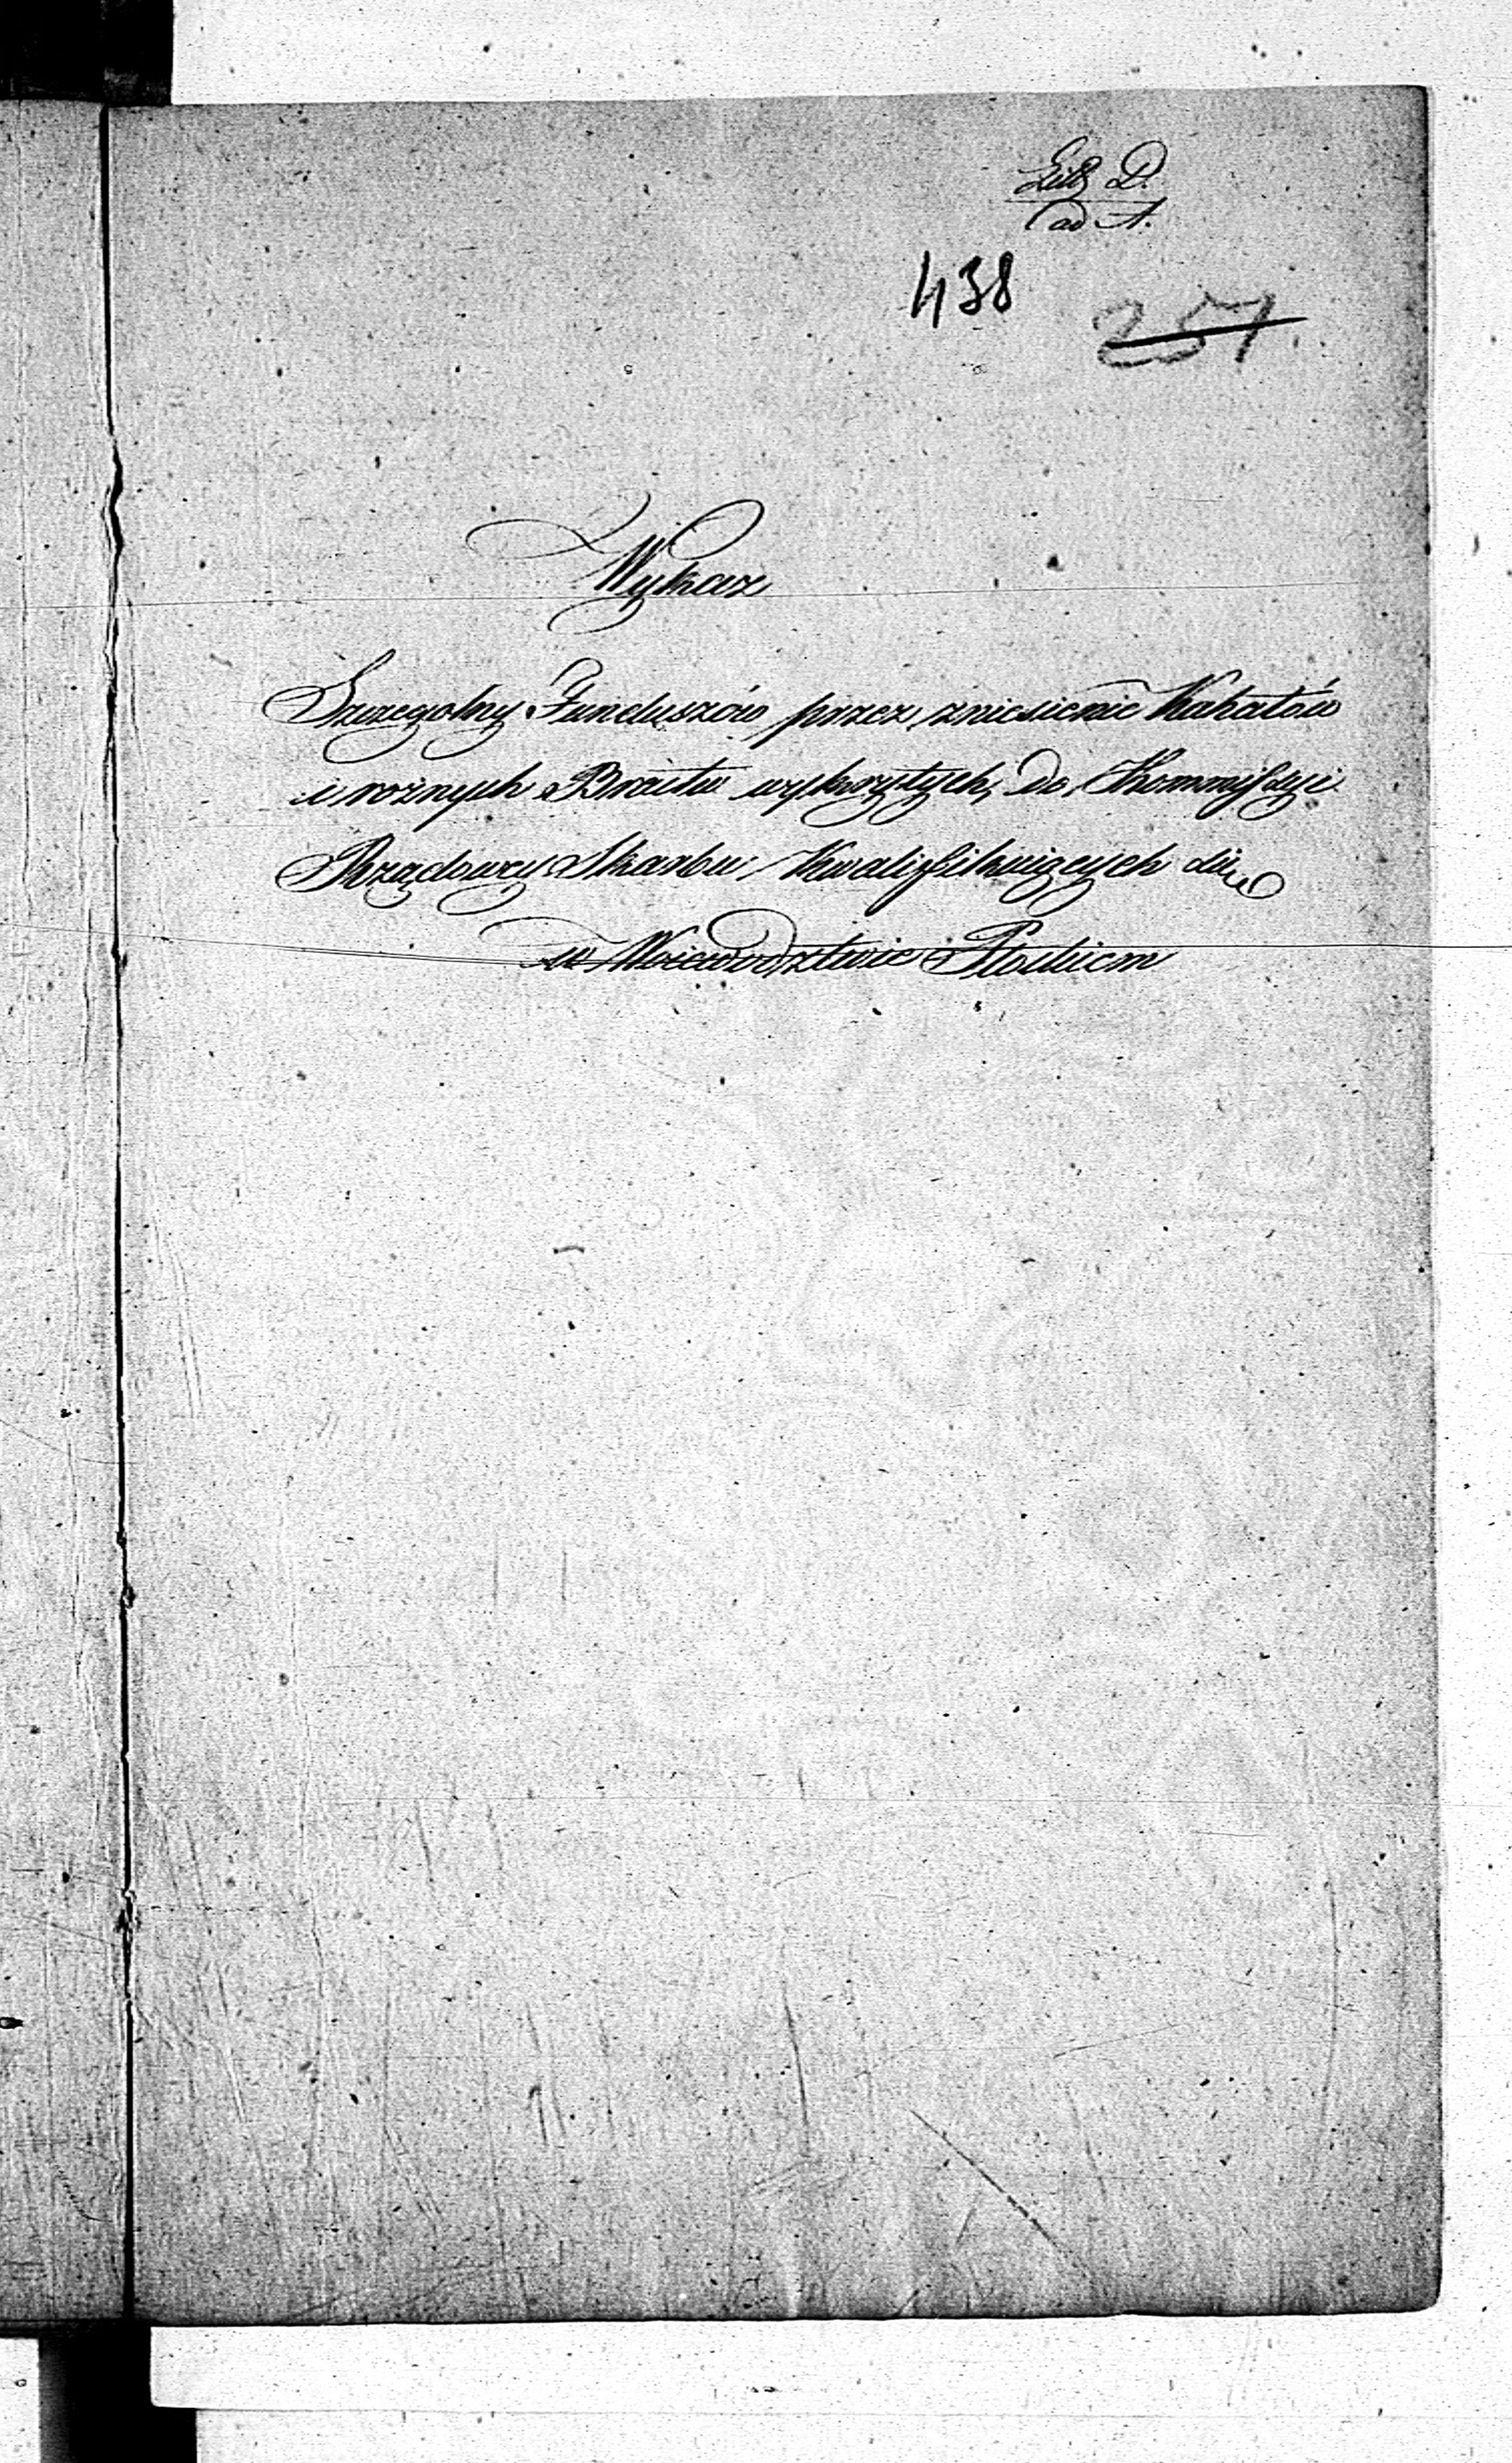 Litt. D.
ad A.
438
257.
Wykaz
Szczegolny Funduszów przez zniesienie Kahałów
i rożnych Bractw wykrytych, do Kommissyi
Rządowey Skarbu Kwalifikuiących się
w Woiewodztwie Płockiem